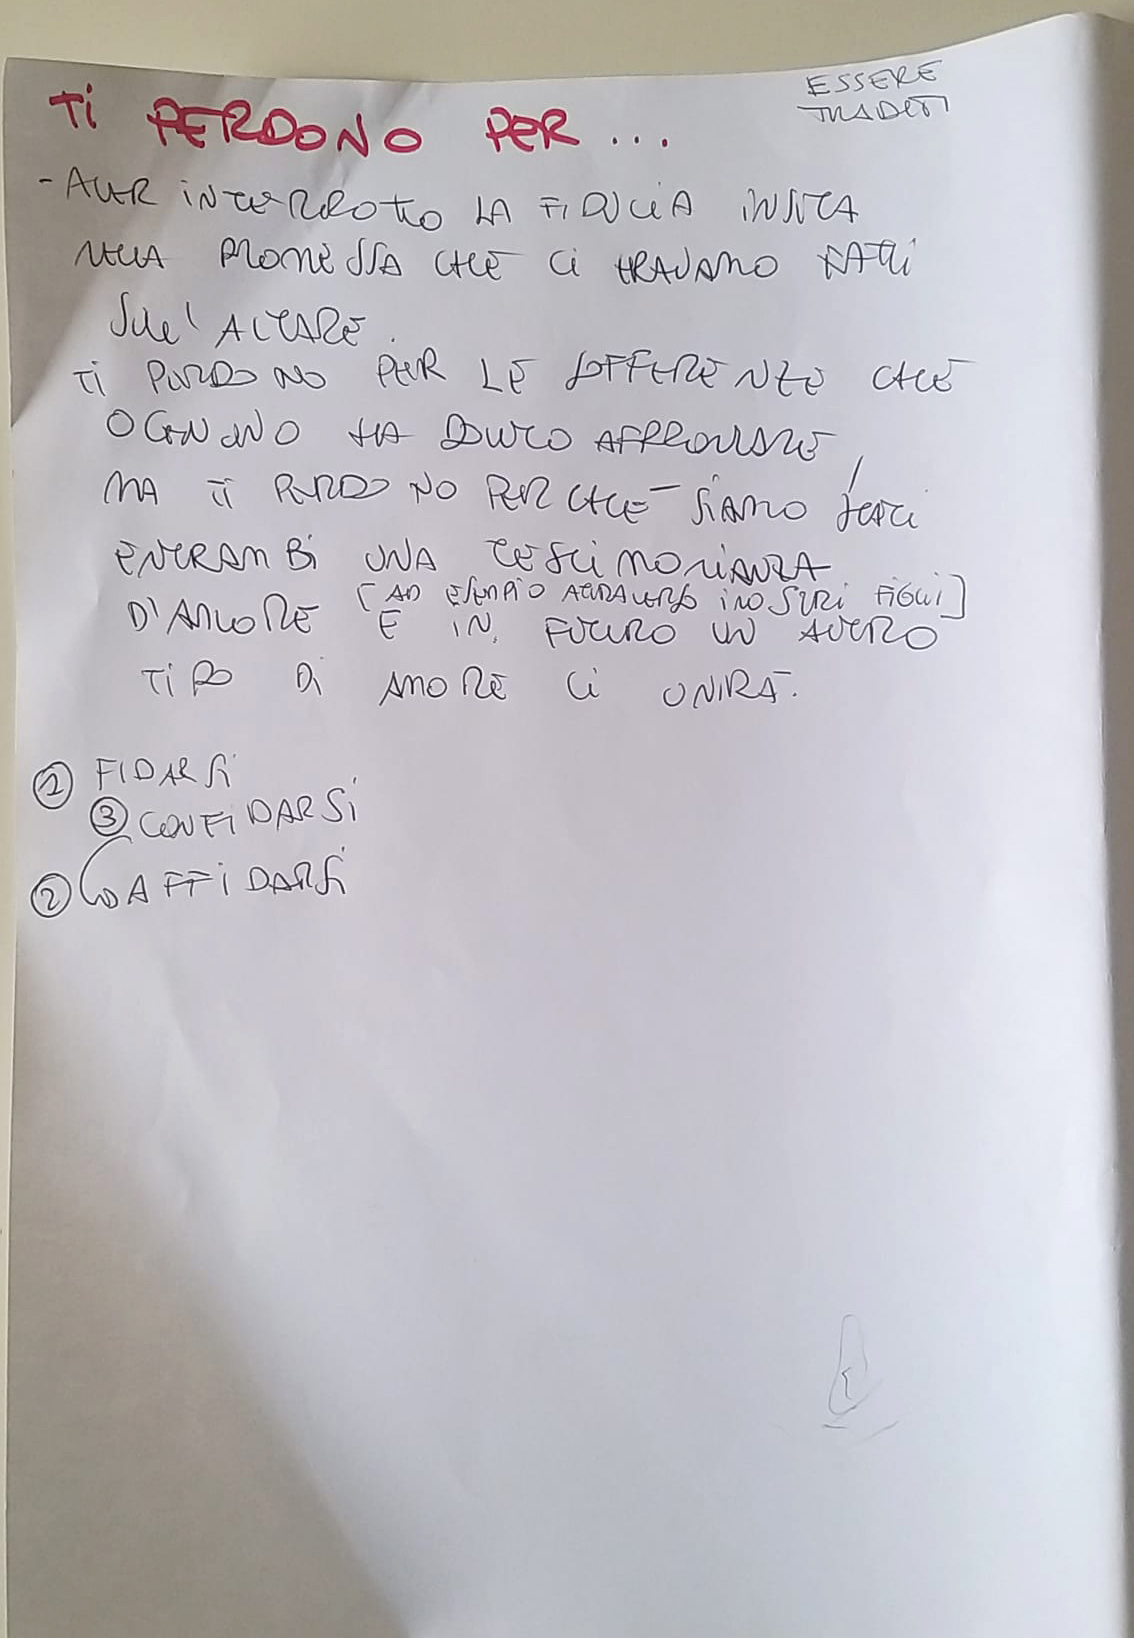 TI PERDONO PER ...
ESSERE
TRADITI
- AVER INTERROTTO LA FIDUCIA INSITA
NELLA PROMESSA CHE CI ERAVAMO FATTI
SULL'ALTARE.
TI PERDONO PER LE SOFFERENZE CHE
OGNUNO HA DOVUTO AFFRONTARE,
MA TI PERDONO PERCHÉ SIAMO STATI
ENTRAMBI UNA TESTIMONIANZA
D'AMORE [AD ESEMPIO ATTRAVERSO I NOSTRI FIGLI]
E IN FUTURO UN ALTRO
TIPO DI AMORE CI UNIRÀ.
① FIDARSI
③ CONFIDARSI
② AFFIDARSI